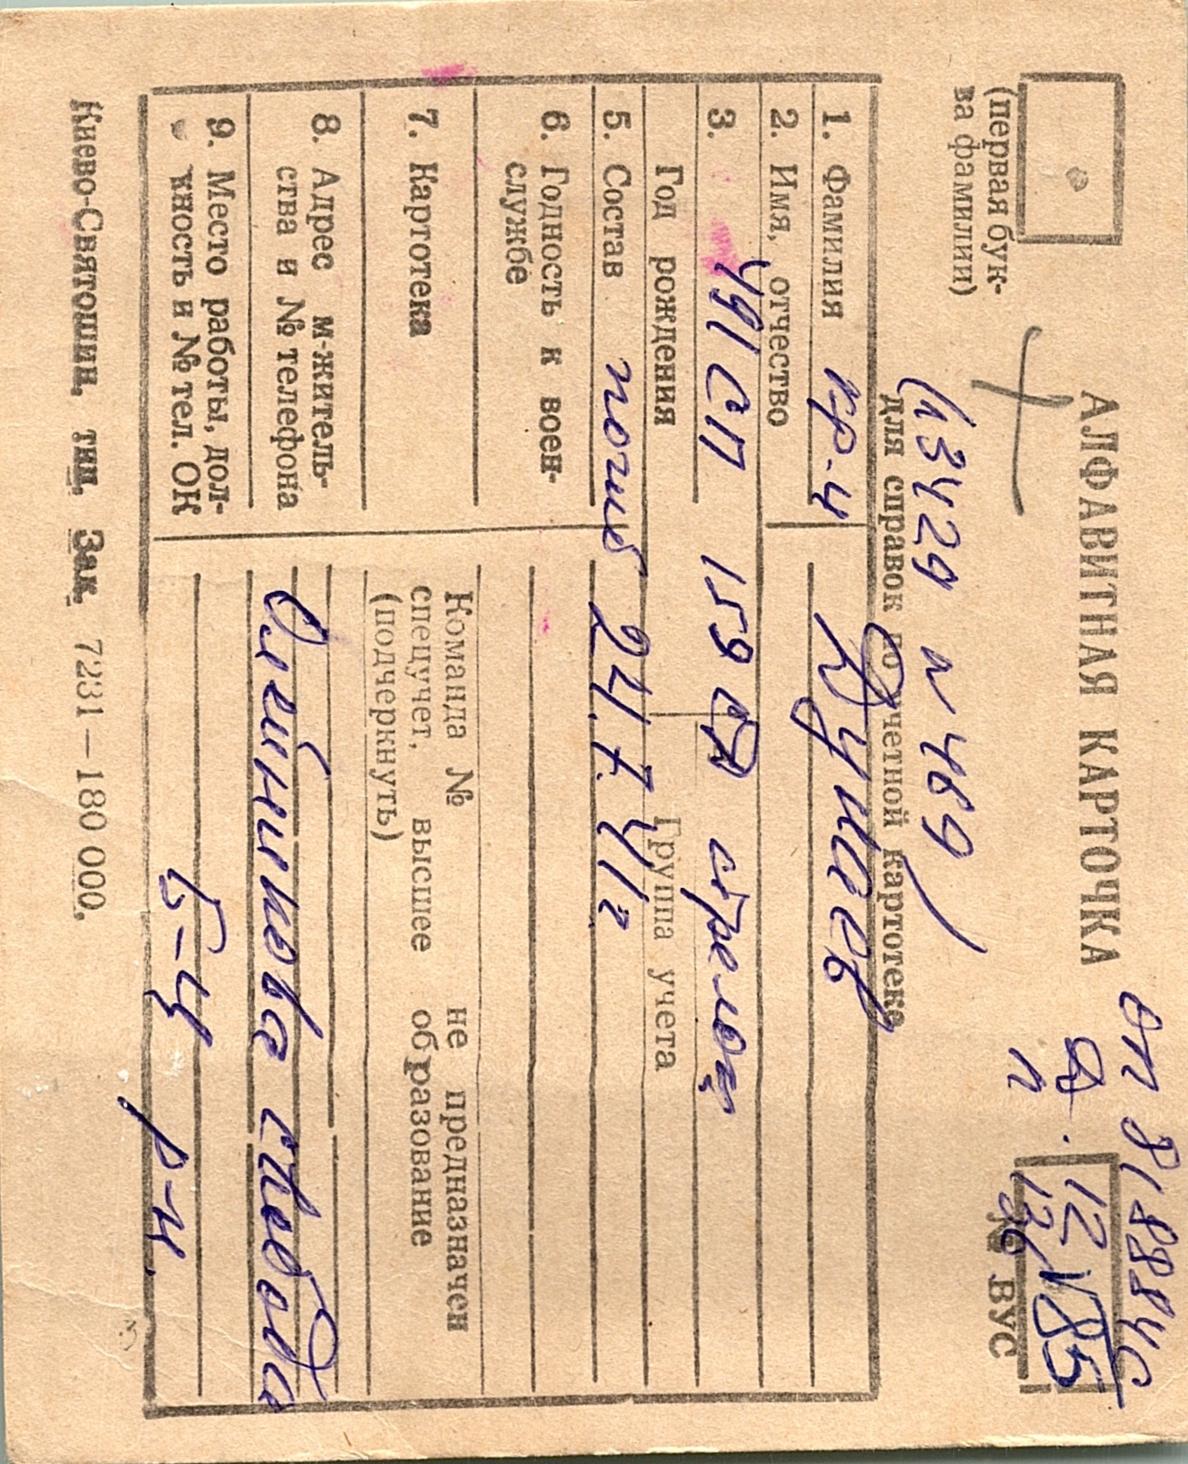 АЛФАВИТНАЯ КАРТОЧКА
для справок по учетной картотеке
(первая бук-
ва фамилии)
оп 818884с
п
12
85
№ ВУС
(л 3429 п 489)
1. Фамилия кр-ц
2. Имя, отчество
3. 491 сп 159 сд стрелок
Год рождения
Группа учета
5. Состав погиб 24.7.41г
6. Годность к воен-
службе
7. Картотека
Команда № не предназначен
спецучет, высшее образование
(подчеркнуть)
8. Адрес м-житель-
ства и № телефона
Олейникова свобода
9. Место работы, дол-
жность и № тел. ОК
Б-Ц р-н.
Киево-Святошин, тип. Зак. 7231—180 000.